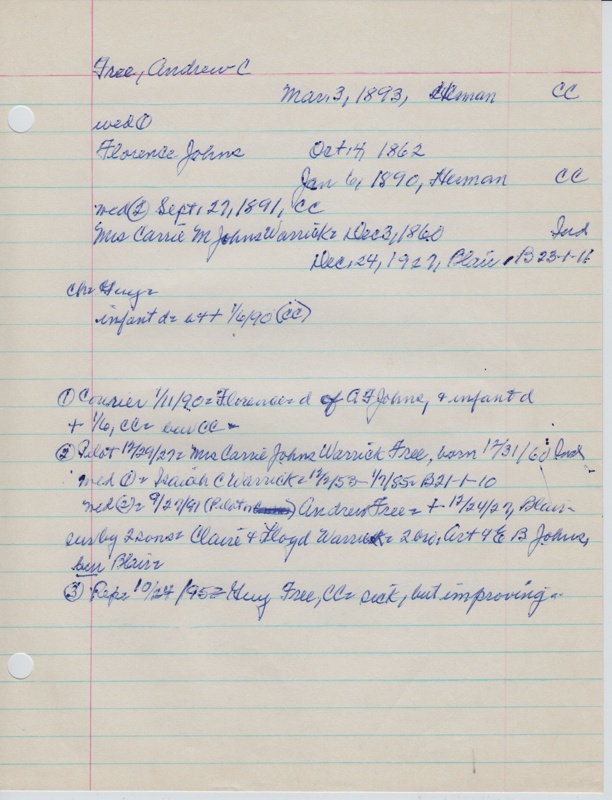 Free, Andrew C
Mar. 3, 1893, Herman CC
wed ①
Florence Johns Oct 14, 1862
Jan 6, 1890, Herman CC
wed ② Sept. 27, 1891, CC
Mrs Carrie M Johns Warrick = Dec 3, 1860 Ind
Dec. 24, 1927, Blair, B23-1-16
ch = Guy =
infant d = + 1/6/90 (CC)
① Courier 1/11/90 = Florence = d of A F Johns, & infant d
+ 1/6, CC = bur CC =
② Pilot 12/29/27 = Mrs Carrie Johns Warrick Free, born 12/31/60 Ind
wed ① = Isaiah C Warrick = 12/2/53 - 1/7/85 = B21-1-10
wed ② = 9/27/91 (Pilot) Andrew Free = + 12/24/27, Blair =
sur by 2 sons = Claire & Floyd Warrick = 2 bro, Art & E B Johns,
bur Blair =
③ Rep = 10/24/95 = Guy Free, CC = sick, but improving =